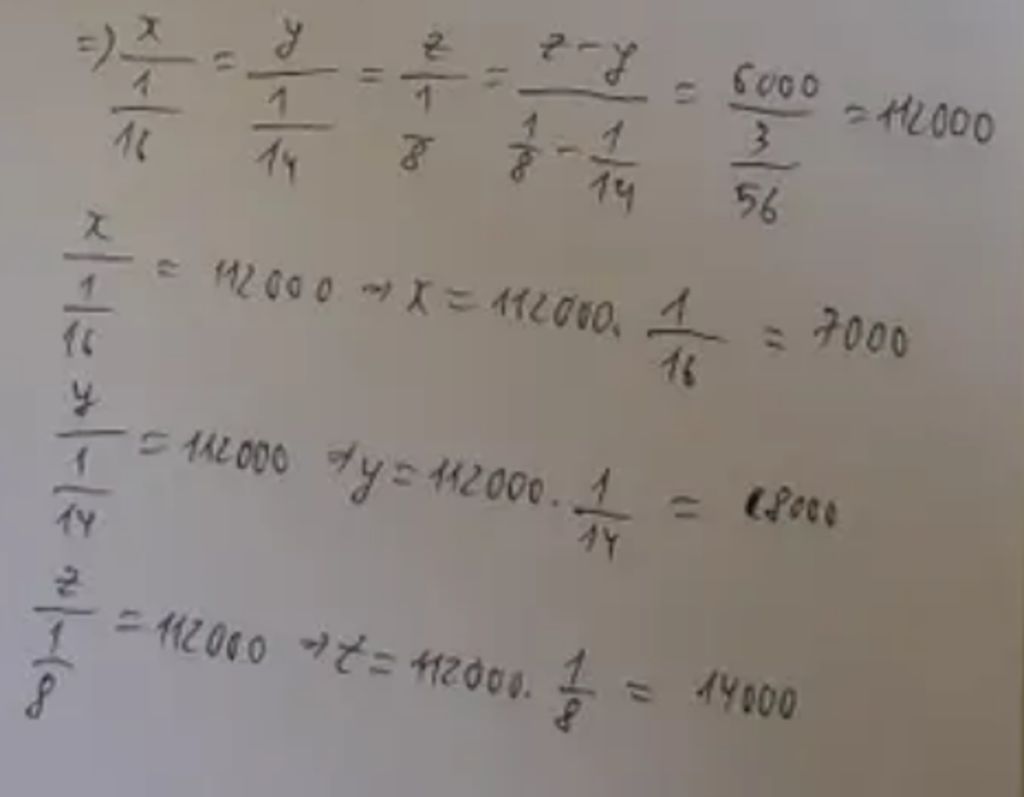 => x/(1/16) = y/(1/14) = z/(1/8) = (z-y)/(1/8 - 1/14) = 6000/(3/56) = 112000
x/(1/16) = 112000 → x = 112000. 1/16 = 7000
y/(1/14) = 112000 → y = 112000. 1/14 = 8000
z/(1/8) = 112000 → z = 112000. 1/8 = 14000